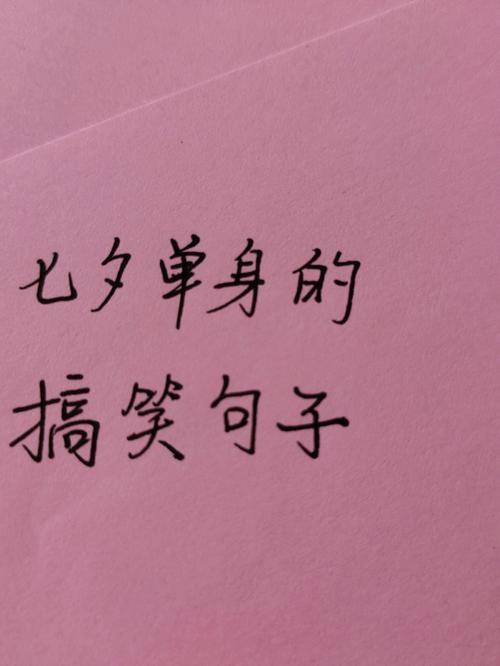 七夕单身的
搞笑句子